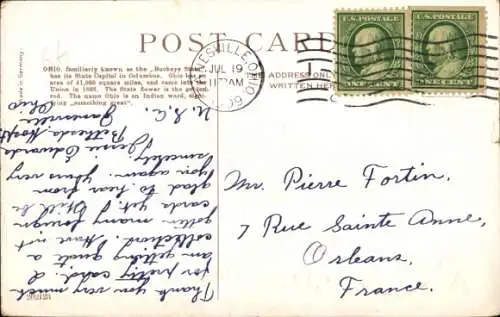 POST CARD
OHIO, familiarly known as the "Buckeye State"
has its State Capital in Columbus. Ohio has an
area of 41,060 square miles, and came into the
Union in 1803. The State flower is the
The name Ohio is an Indian word,
"something great".
Made in Germany
ZANESVILLE, OHIO
JUL 19
11 AM
1909
ADDRESS ONLY
WRITTEN HERE
U.S. POSTAGE
ONE CENT
U.S. POSTAGE
Mr. Pierre Fortin,
7 Rue Sainte Anne,
Orleans,
France.
Thank you very much
for pretty card. I
am getting quite a
collection. Have not
gotten many foreign
cards yet. Will be
glad to hear from
you again. Yours very
sincerely
Jessie Edwards
Bethesda Hospt
Zanesville
Ohio
U.S.A.